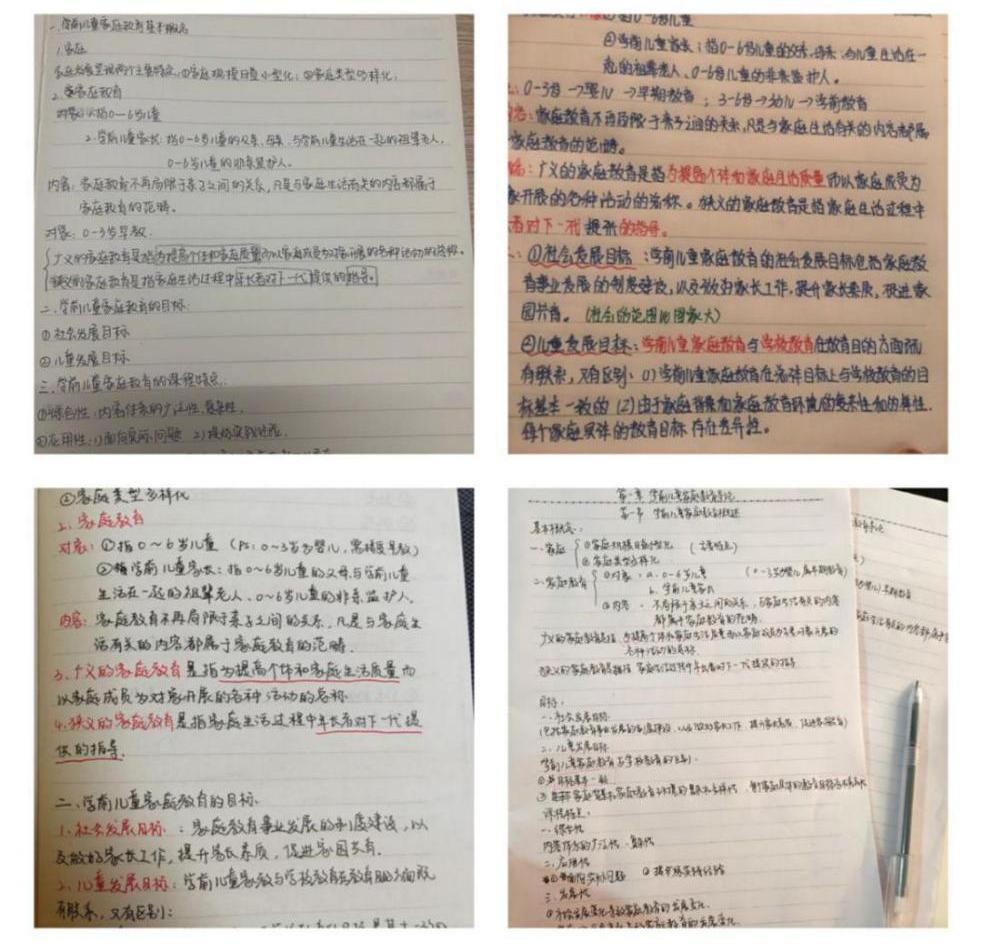 一、学前儿童家庭教育基本概念
1.家庭
家庭发展呈现两个主要特点：①家庭规模日益小型化；②家庭类型多样化；
2.家庭教育
对象：1.指0—6岁儿童
2.学前儿童家长：指0—6岁儿童的父亲、母亲、与学前儿童生活在一起的祖辈老人、
0—6岁儿童的非亲监护人。
内容：家庭教育不再局限于亲子之间的关系，凡是与家庭生活有关的内容都属于
家庭教育的范畴。
对象：0—3岁早教
广义的家庭教育是指为提高个体和家庭质量而以家庭成员为对象开展的各种活动的名称。
狭义的家庭教育是指家庭生活过程中年长者对下一代提供的指导。
二、学前儿童家庭教育的目标
①社会发展目标
②儿童发展目标
三、学前儿童家庭教育的课程特点：
①综合性：内容体系的广泛性、复杂性
②应用性：1)面向实际问题 2)提炼实践经验
0—6岁儿童
②学前儿童家长：指0—6岁儿童的父亲、母亲、与儿童生活在一
起的祖辈老人、0—6岁儿童的非亲监护人。
0—3岁→婴儿→早期教育；3—6岁→幼儿→学前教育
内容：家庭教育不再局限于亲子之间的关系，凡是与家庭生活有关的内容都属
家庭教育的范畴。
广义的家庭教育是指为提高个体和家庭生活质量而以家庭成员为
象开展的各种活动的名称。狭义的家庭教育是指家庭生活过程中
者对下一代提供的指导。
①社会发展目标：学前儿童家庭教育的社会发展目标包括家庭教
育事业发展的制度建设，以及做好家长工作，提升家长素质，促进家
园共育。（社会的范围比国家大）
②儿童发展目标：学前儿童家庭教育与学校教育在教育目的方面既
有联系，又有区别：(1)学前儿童家庭教育在总体目标上与学校教育的目
标基本一致的 (2)由于家庭背景和家庭教育环境的复杂性和多样性，
每个家庭具体的教育目标存在差异性。
②家庭类型多样化
2、家庭教育
对象：①指0～6岁儿童（PS：0～3岁为婴儿，
②指学前儿童家长：指0～6岁儿童的父母与学前儿童
生活在一起的祖辈老人、0～6岁儿童的非亲监护人。
内容：家庭教育不再局限于亲子之间的关系，凡是与家庭生
活有关的内容都属于家庭教育的范畴。
3、广义的家庭教育是指为提高个体和家庭生活质量而
以家庭成员为对象开展的各种活动的名称
4、狭义的家庭教育是指家庭生活过程中年长者对下一代提
供的指导。
二、学前儿童家庭教育的目标
1、社会发展目标：家庭教育事业发展的制度建设，以
及做好家长工作，提升家长素质，促进家园共育.
2、儿童发展目标：学前儿童家教与学校教育在教育目的方面既
有联系，又有区别：
第一章 学前儿童家庭教育导论
第一节 学前儿童家庭教育概述
基本概念：
一、家庭 ①家庭规模日益小型化（主要特点）
②家庭类型多样化
二、家庭教育 ①对象：a. 0—6岁儿童（0—3岁婴儿属早期教育）
b. 学前儿童家长
②内容：不局限于亲子之间的关系，与家庭生活有关的内容
都属于家庭教育的范畴。
广义的家庭教育是指：为提高个体和家庭生活质量而以家庭成员为对象开展的
各种活动的名称
狭义的家庭教育是指家庭生活过程中年长者对下一代提供的指导
目标：
一、社会发展目标
二、儿童发展目标
学前儿童家庭教育与学校教育的
①总目标基本一致
课程特点：
一、综合性
内容体系的广泛性、复杂性
二、应用性
①面向实际问题 ②提炼实践经验
三、发展性